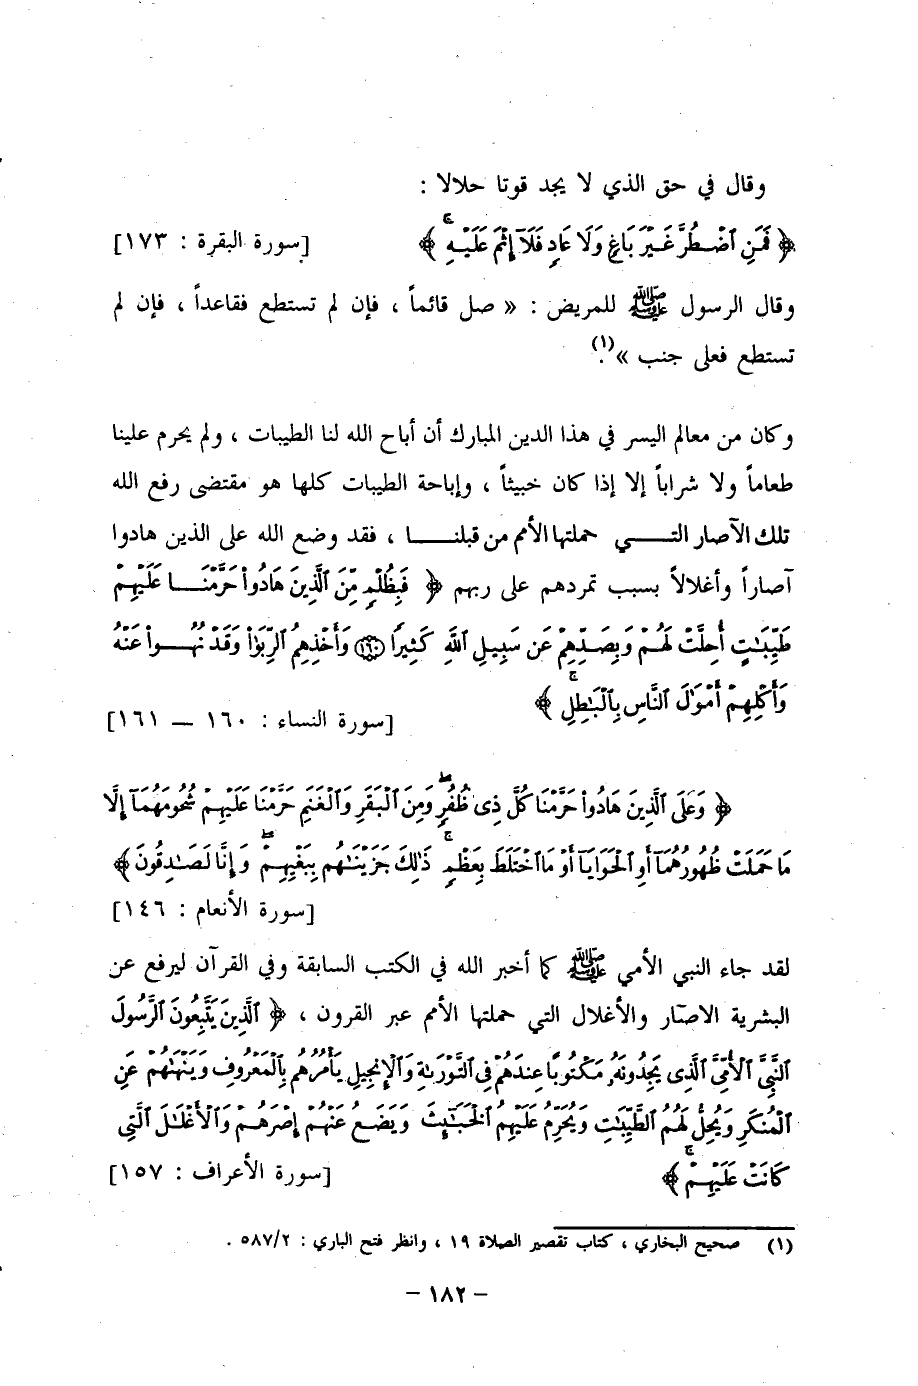 وقال في حق الذي لا يجد قوتا حلالا :
﴿ فَمَنِ ٱضْطُرَّ غَيْرَ بَاغٍ وَلَا عَادٍ فَلَآ إِثْمَ عَلَيْهِ ۚ ﴾ [سورة البقرة : ١٧٣]
وقال الرسول ﷺ للمريض : « صل قائماً ، فإن لم تستطع فقاعداً ، فإن لم
تستطع فعلى جنب »(١).
وكان من معالم اليسر في هذا الدين المبارك أن أباح الله لنا الطيبات ، ولم يحرم علينا
طعاماً ولا شراباً إلا إذا كان خبيثاً ، وإباحة الطيبات كلها هو مقتضى رفع الله
تلك الآصار التـــي حملتها الأمم من قبلنـــا ، فقد وضع الله على الذين هادوا
آصاراً وأغلالاً بسبب تمردهم على ربهم ﴿ فَبِظُلْمٍ مِّنَ ٱلَّذِينَ هَادُوا۟ حَرَّمْنَـــا عَلَيْهِمْ
طَيِّبَـٰتٍ أُحِلَّتْ لَهُمْ وَبِصَدِّهِمْ عَن سَبِيلِ ٱللَّهِ كَثِيرًا ﴿١٦٠﴾ وَأَخْذِهِمُ ٱلرِّبَوٰا۟ وَقَدْ نُهُـــوا۟ عَنْهُ
وَأَكْلِهِمْ أَمْوَٰلَ ٱلنَّاسِ بِٱلْبَـٰطِلِ ۚ ﴾ [سورة النساء : ١٦٠ – ١٦١]
﴿ وَعَلَى ٱلَّذِينَ هَادُوا۟ حَرَّمْنَا كُلَّ ذِى ظُفُرٍ ۖ وَمِنَ ٱلْبَقَرِ وَٱلْغَنَمِ حَرَّمْنَا عَلَيْهِمْ شُحُومَهُمَآ إِلَّا
مَا حَمَلَتْ ظُهُورُهُمَآ أَوِ ٱلْحَوَايَآ أَوْ مَا ٱخْتَلَطَ بِعَظْمٍ ۚ ذَٰلِكَ جَزَيْنَـٰهُم بِبَغْيِهِمْ ۖ وَإِنَّا لَصَـٰدِقُونَ ﴾
[سورة الأنعام : ١٤٦]
لقد جاء النبي الأمي ﷺ كما أخبر الله في الكتب السابقة وفي القرآن ليرفع عن
البشرية الاصآر والأغلال التي حملتها الأمم عبر القرون ، ﴿ ٱلَّذِينَ يَتَّبِعُونَ ٱلرَّسُولَ
ٱلنَّبِىَّ ٱلْأُمِّىَّ ٱلَّذِى يَجِدُونَهُۥ مَكْتُوبًا عِندَهُمْ فِى ٱلتَّوْرَىٰةِ وَٱلْإِنجِيلِ يَأْمُرُهُم بِٱلْمَعْرُوفِ وَيَنْهَىٰهُمْ عَنِ
ٱلْمُنكَرِ وَيُحِلُّ لَهُمُ ٱلطَّيِّبَـٰتِ وَيُحَرِّمُ عَلَيْهِمُ ٱلْخَبَـٰٓئِثَ وَيَضَعُ عَنْهُمْ إِصْرَهُمْ وَٱلْأَغْلَـٰلَ ٱلَّتِى
كَانَتْ عَلَيْهِمْ ۚ ﴾ [سورة الأعراف : ١٥٧]
(١) صحيح البخاري ، كتاب تقصير الصلاة ١٩ ، وانظر فتح الباري : ٥٨٧/٢ .
– ١٨٢ –